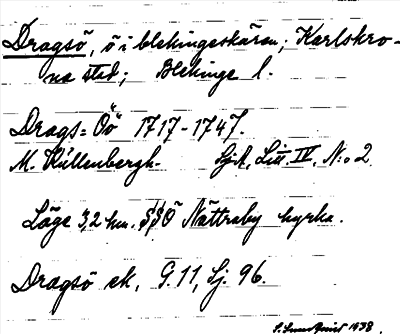 Dragsö, ö i blekingeskären; Karlskro-
na stad; Blekinge l.
Drags=Öö 1717-1747.
M. Kullenbergh. SjA, Litt. IV, N:o 2
Läge 3,2 km. SSÖ Nättraby kyrka.
Dragsö ek, G. 11, Sj. 96.
1938.